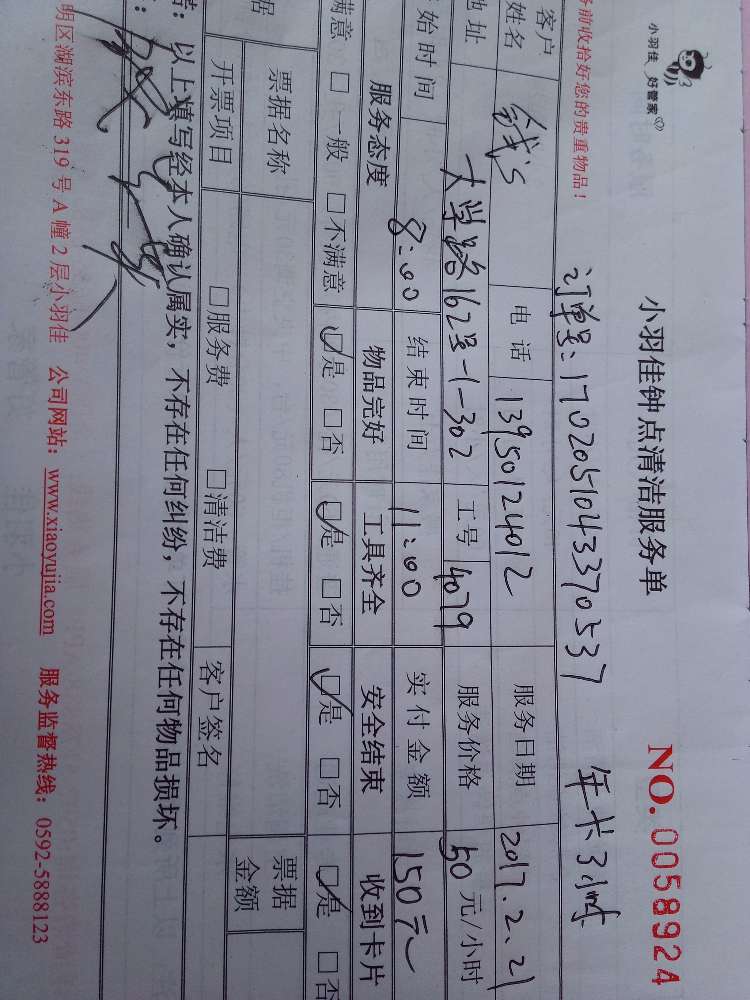 小羽佳 好管家
小羽佳钟点清洁服务单 NO. 0058924
务前收拾好您的贵重物品！ 订单号：1702051043370537 年卡3小时
客户姓名 钱's 电话 13950124012 服务日期 2017.2.21
地址 大学路162号-1-302 工号 4079 服务价格 50 元/小时
始时间 8:00 结束时间 11:00 实付金额 150元
服务态度 物品完好 工具齐全 安全结束 收到卡片
满意 □ 一般 □ 不满意 ☑是 □否 ☑是 □否 ☑是 □否 ☑是 □否
据 票据名称 票据金额
开票项目 □服务费 □清洁费 客户签名
：以上填写经本人确认属实，不存在任何纠纷，不存在任何物品损坏。
明区湖滨东路 319 号 A 幢 2 层小羽佳 公司网站：www.xiaoyujia.com 服务监督热线：0592-5888123